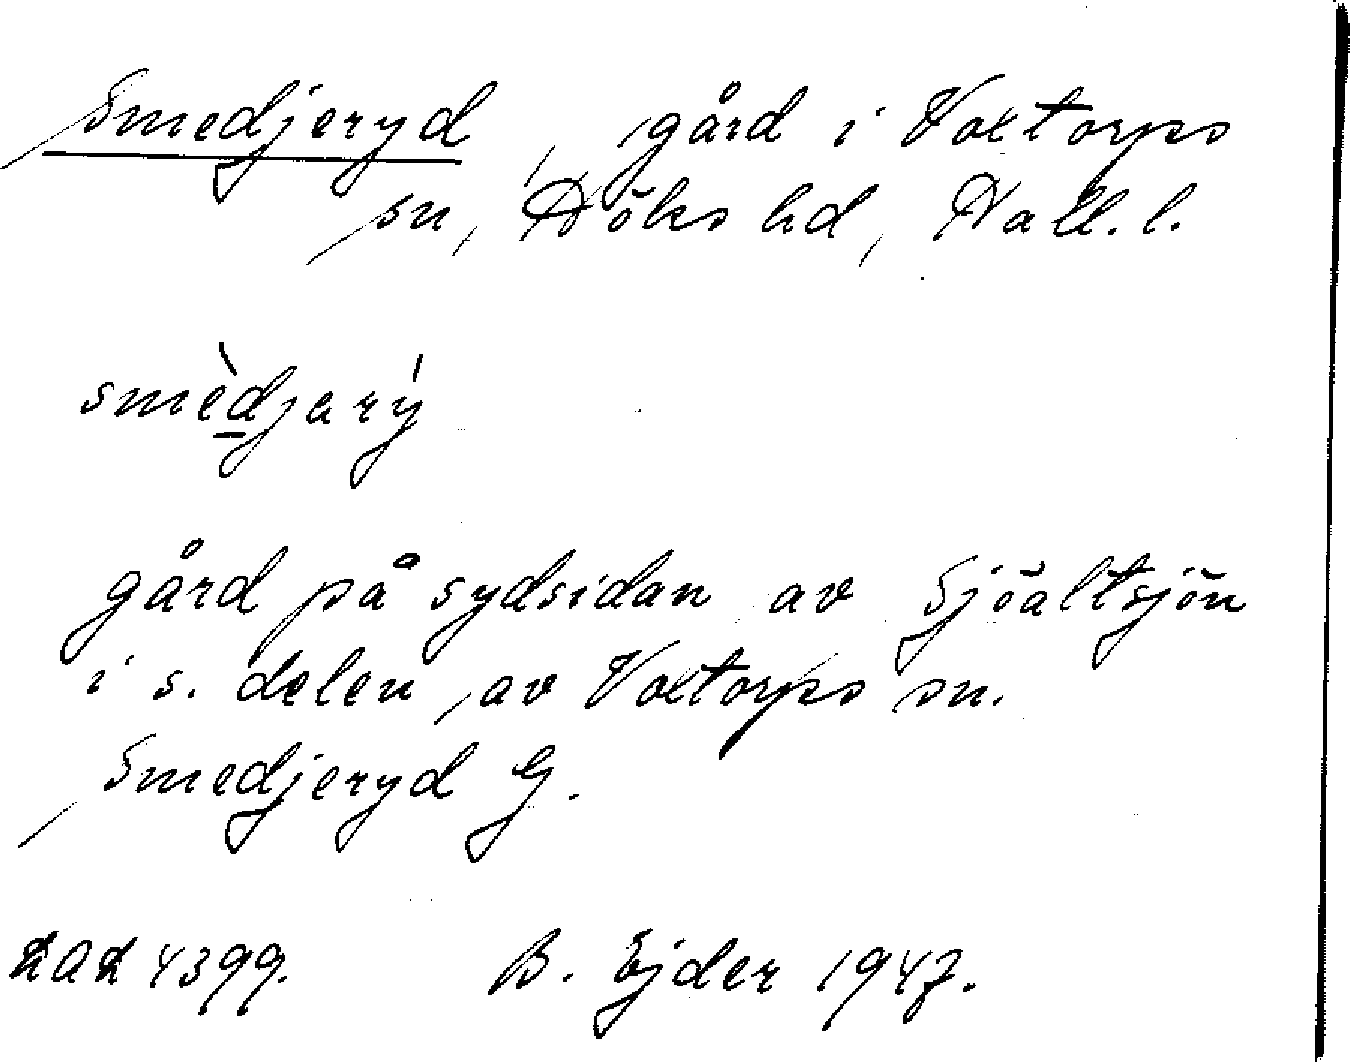 Smedjeryd, gård i Voxtorps
sn, Höks hd, Hall. l.
smèdjarý
gård på sydsidan av Sjöaltsjön
i s. delen av Voxtorps sn.
Smedjeryd G.
LAL 4399. B. Ejder 1947.